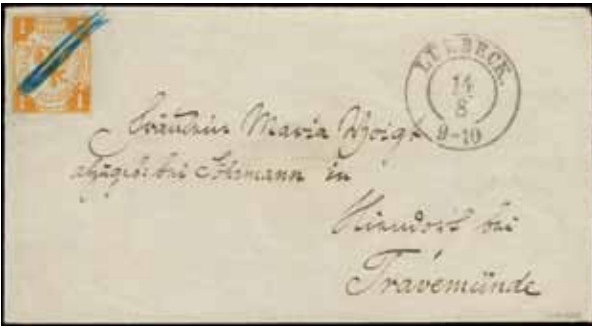 1
1
1
1
LÜBECK.
14
8
9-10
Fräulein Maria Voigt
abzugeb. bei Lohrmann in
Niendorf bei
Travemünde